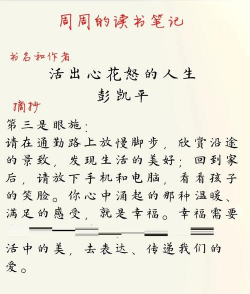 周周的读书笔记
书名和作者
活出心花怒的人生
彭凯平
摘抄
第三是眼施：
请在通勤路上放慢脚步，欣赏沿途
的景致，发现生活的美好；回到家
后，请放下手机和电脑，看看孩子
的笑脸。你心中涌起的那种温暖、
满足的感受，就是幸福。幸福需要
活中的美，去表达、传递我们的
爱。